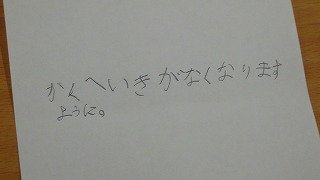 かくへいきがなくなります
ように。